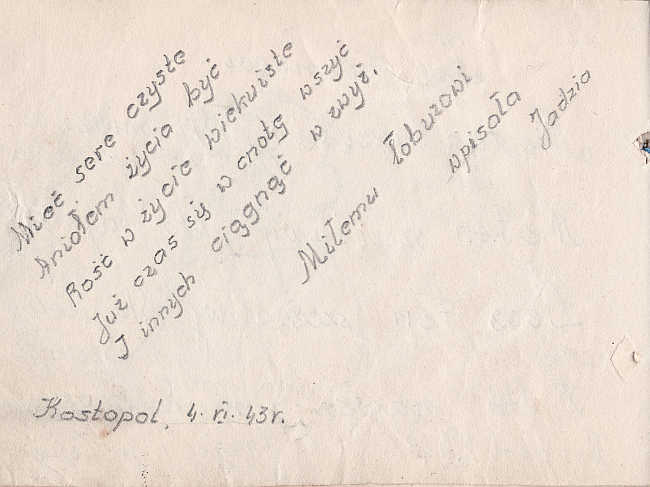 Mieć serc czyste
Aniołem życia być
Rość w życie wiekuiste
Już czas się w cnotę wszyć
I innych ciągnąć w zwyż.
Miłemu Łobuzowi
wpisała
Jadzia
Kostopol, 4. VI. 43 r.